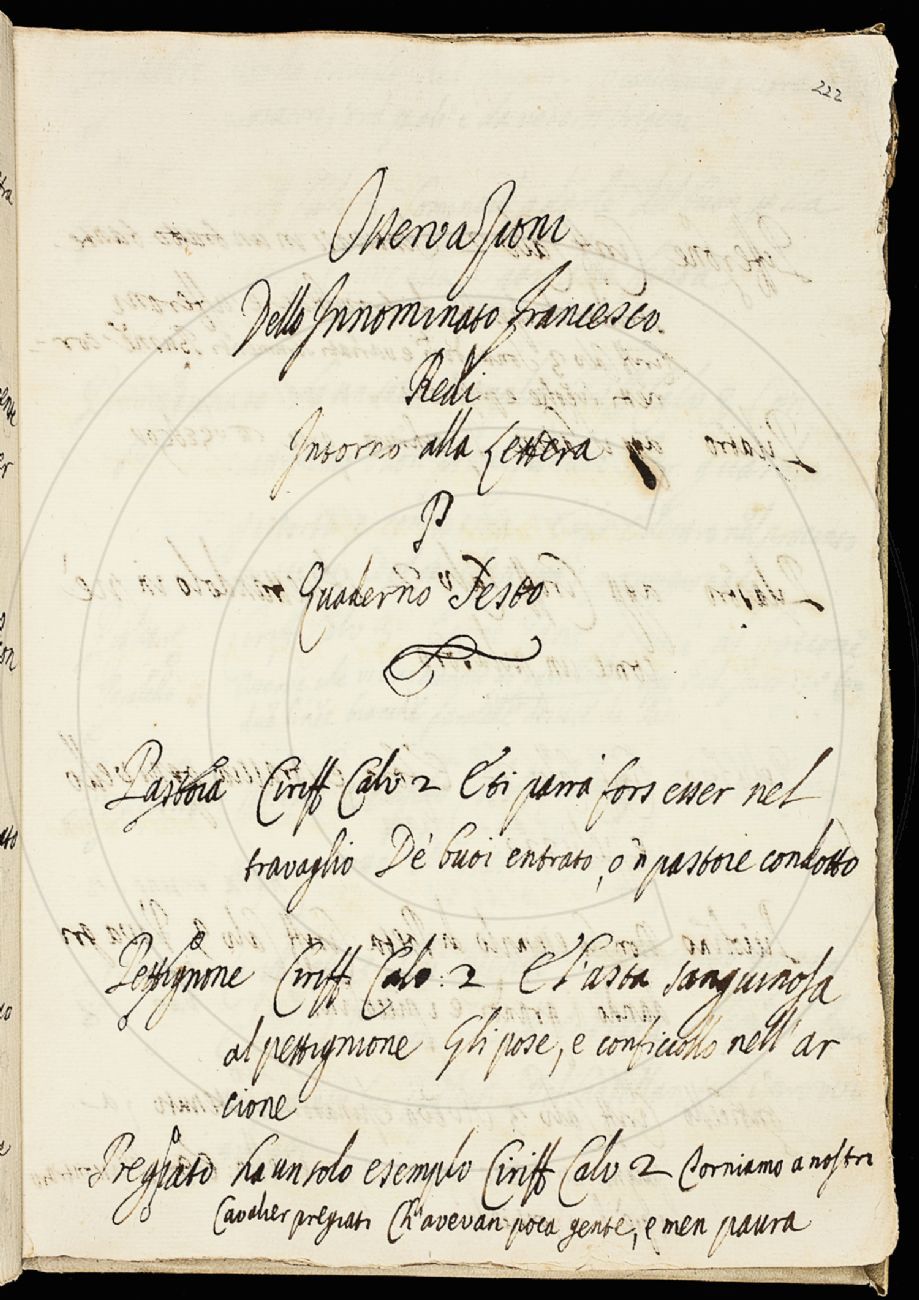 222
Osservazioni
Dello Innominato Francesco
Redi
Intorno alla Lettera
P
Quaderno Sesto
Pastoia Ciriff Calv 2 E ti parrà fors esser nel
travaglio De' buoi entrato, o 'n pastoie condotto
Pettignone Ciriff. Calv. 2 E l'asta sanguinosa
al pettignione Gli pose, e conficcollo nell' ar
cione
Pregiato ha un solo esemplo Ciriff Calv 2 Torniamo a nostri
Cavalier pregiati Ch'avevan poca gente, e men paura